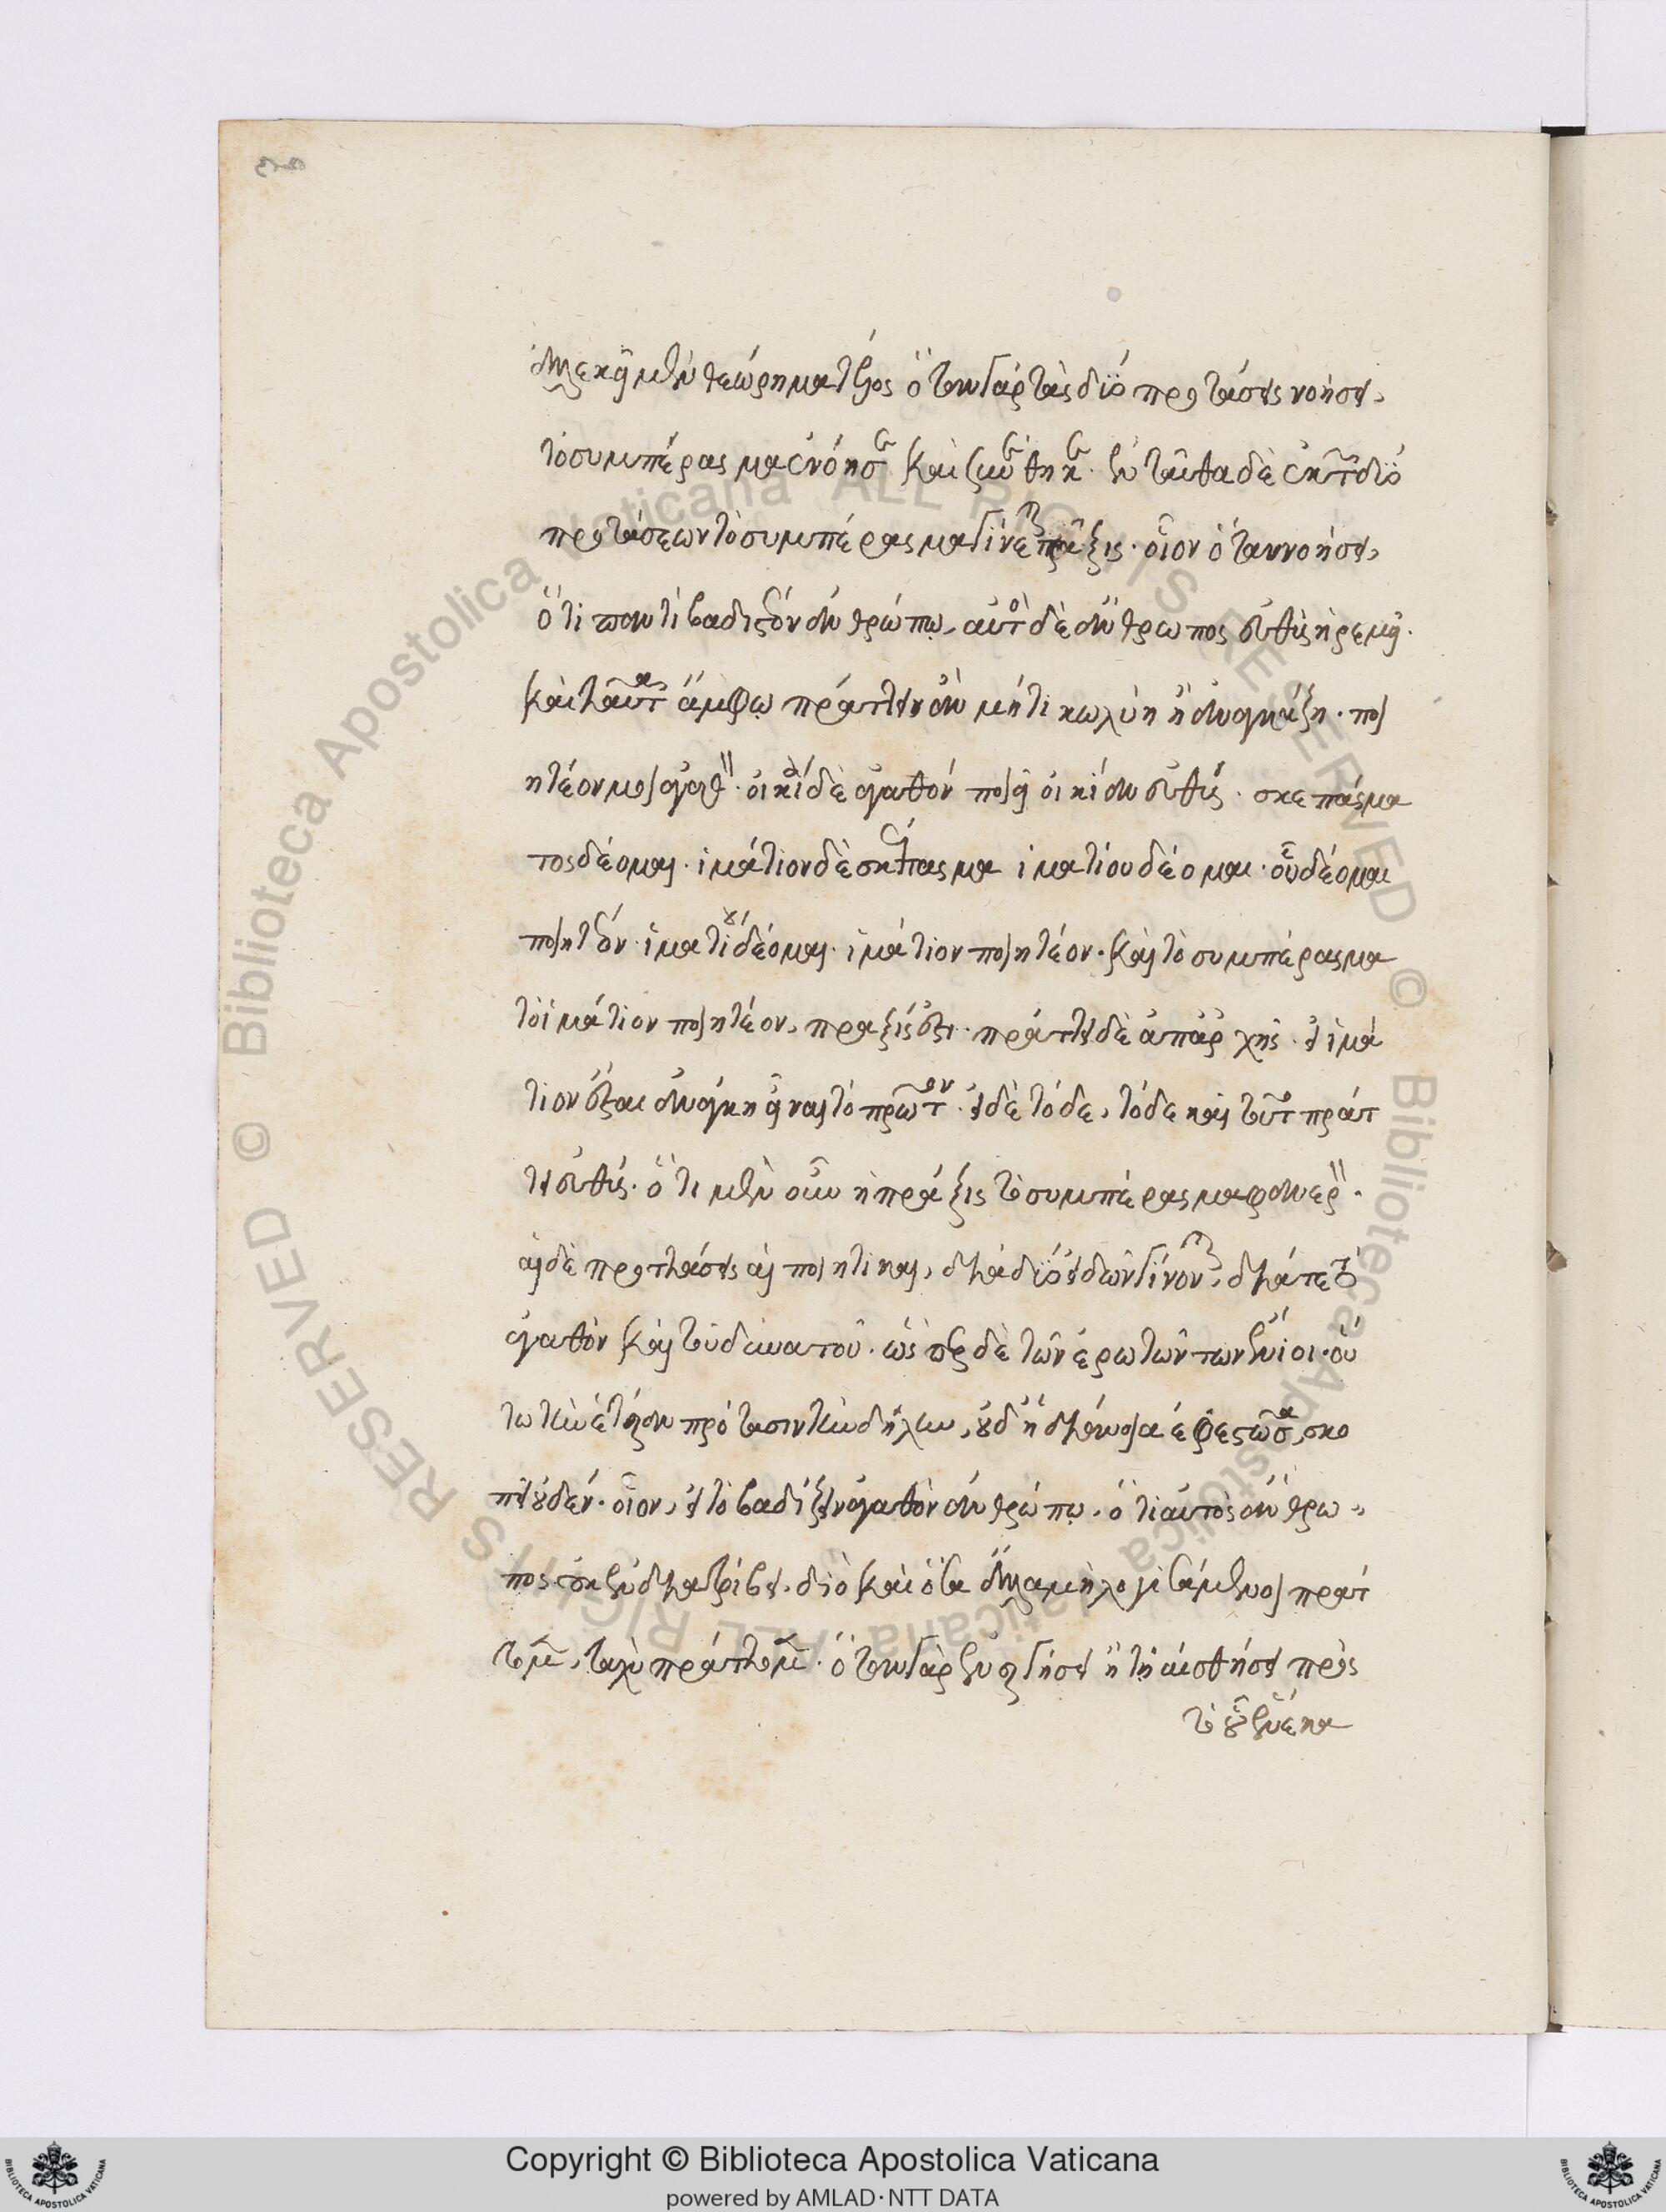 ἀλλεκεῖ μὲν θεώρημα τέλος ὅταν γὰρ τὰς δϊό προτάσεις νοήσει,
τὸ συμπέρασμα ἐνόησεν καὶ συνέθηκεν. ἐνταῦθα δὲ ἐκ τῶν δϊό
προτάσεων τὸ συμπέρασμα γίνεται πρᾶξις. οἷον ὅταν νοήσει,
ὅτι παντὶ βαδιστέον ἀνθρώπῳ, αὐτὸς δὲ ἄνθρωπος εὐθὺς ἠρεμεῖ.
καὶ ταῦτα ἄμφω πράττειν ἂν μή τι κωλύη ἢ ἀναγκάζη. ποι
ητέον μοι ἀγαθόν. οἰκία δὲ ἀγαθόν ποιεῖ οἰκίαν εὐθύς. σκεπάσμα
τος δέομαι. ἱμάτιον δὲ σκέπασμα ἱματίου δέομαι. οὗ δέομαι
ποιητέον. ἱματίου δέομαι. ἱμάτιον ποιητέον. καὶ τὸ συμπέρασμα
τὸ ἱμάτιον ποιητέον, πραξίς ἐστι. πράττει δὲ ἀπαρχῆς. εἰ ἱμά
τιον ἔσται ἀνάγκη εἶναι τὸ πρῶτον. εἰ δὲ τόδε, τόδε καὶ τοῦτο πράτ
τει εὐθύς. ὅτι μὲν οὖν ἡ πράξις τὸ συμπέρασμα φανερόν.
αἱ δὲ προτάσεις αἱ ποιητικαὶ, διὰ δϊό εἰδῶν γίνονται, διά τε τοῦ
ἀγαθὸν καὶ τοῦ δυνατοῦ. ὥσπερ δὲ τῶν ἐρωτῶντων ἔνιοι. οὕ
τω τὴν ἑτέραν πρότασιν τὴν δήλην, οὐδ ἡ διάνοια ἐφεστῶσα, σκο
πεῖ οὐδέν. οἷον, εἰ τὸ βαδίζειν ἀγαθὸν ἀνθρώπῳ. ὅτι αὐτὸς ἄνθρω
πος οὐκ ἐνδιατρίβει. διὸ καὶ ὅσα ἄλλα μὴ λογισάμενοι πράτ
τομεν, ταχὺ πράττομεν. ὅταν γὰρ ἐνεργήσει ἢ τῇ αἰσθήσει πρὸς
τὸ οὗ ἕνεκα